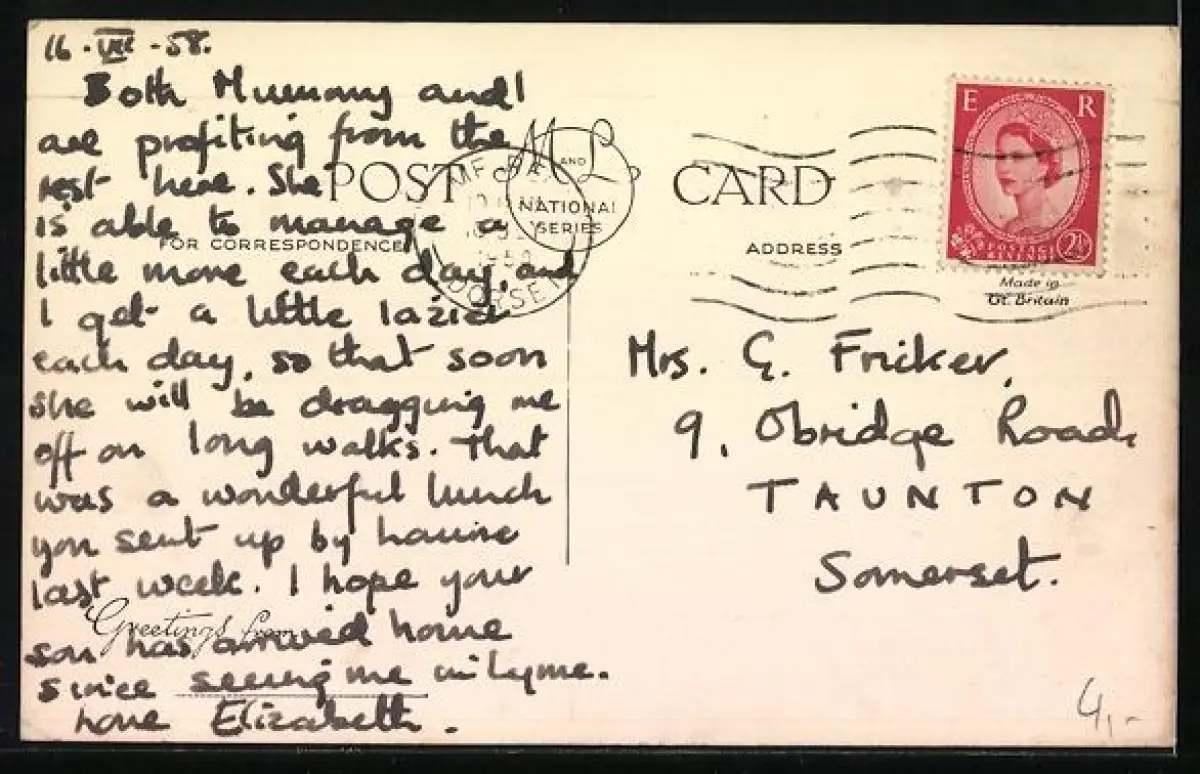 16 · VII · 58.
Both Mummy and I
are profiting from the
rest here. She
is able to manage a
little more each day, and
I get a little lazier
each day, so that soon
she will be dragging me
off on long walks. That
was a wonderful lunch
you sent up by
last week. I hope your
son has arrived home
since seeing me in Lyme.
Love Elizabeth.
POST CARD
M AND L
NATIONAL
SERIES
FOR CORRESPONDENCE
ADDRESS
Greetings from
E R
POSTAGE
REVENUE
2½
Made in
Gt. Britain
DORSET
Mrs. G. Fricker,
9, Obridge Road,
TAUNTON
Somerset.
4,-